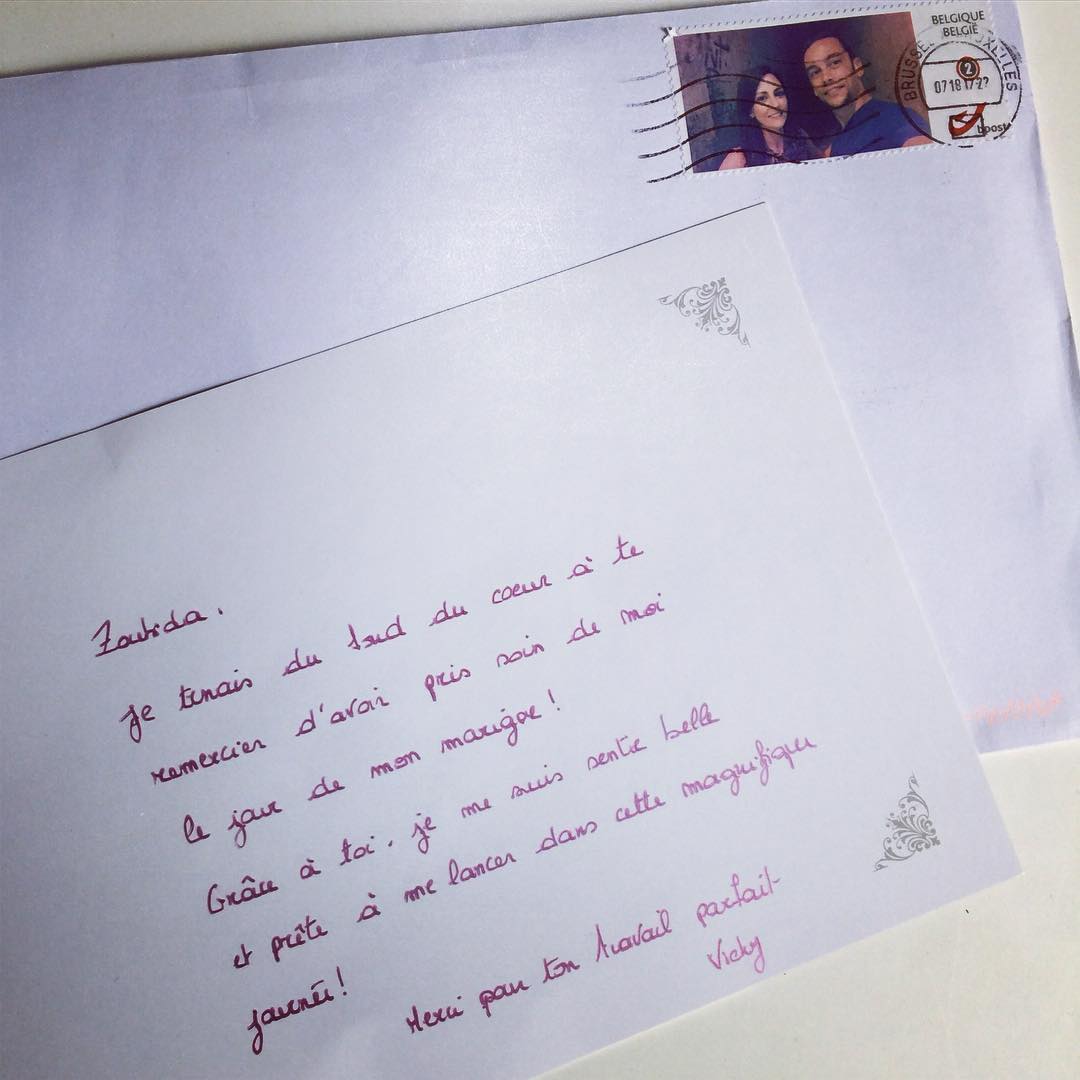 BELGIQUE
BELGIË
BRUSSEL BRUXELLES
2
0718
bpost
Zoubida,
je tenais du fond du coeur à te
remercier d'avoir pris soin de moi
le jour de mon mariage !
Grâce à toi, je me suis sentie belle
et prête à me lancer dans cette magnifique
journée !
Merci pour ton travail parfait
Vicky